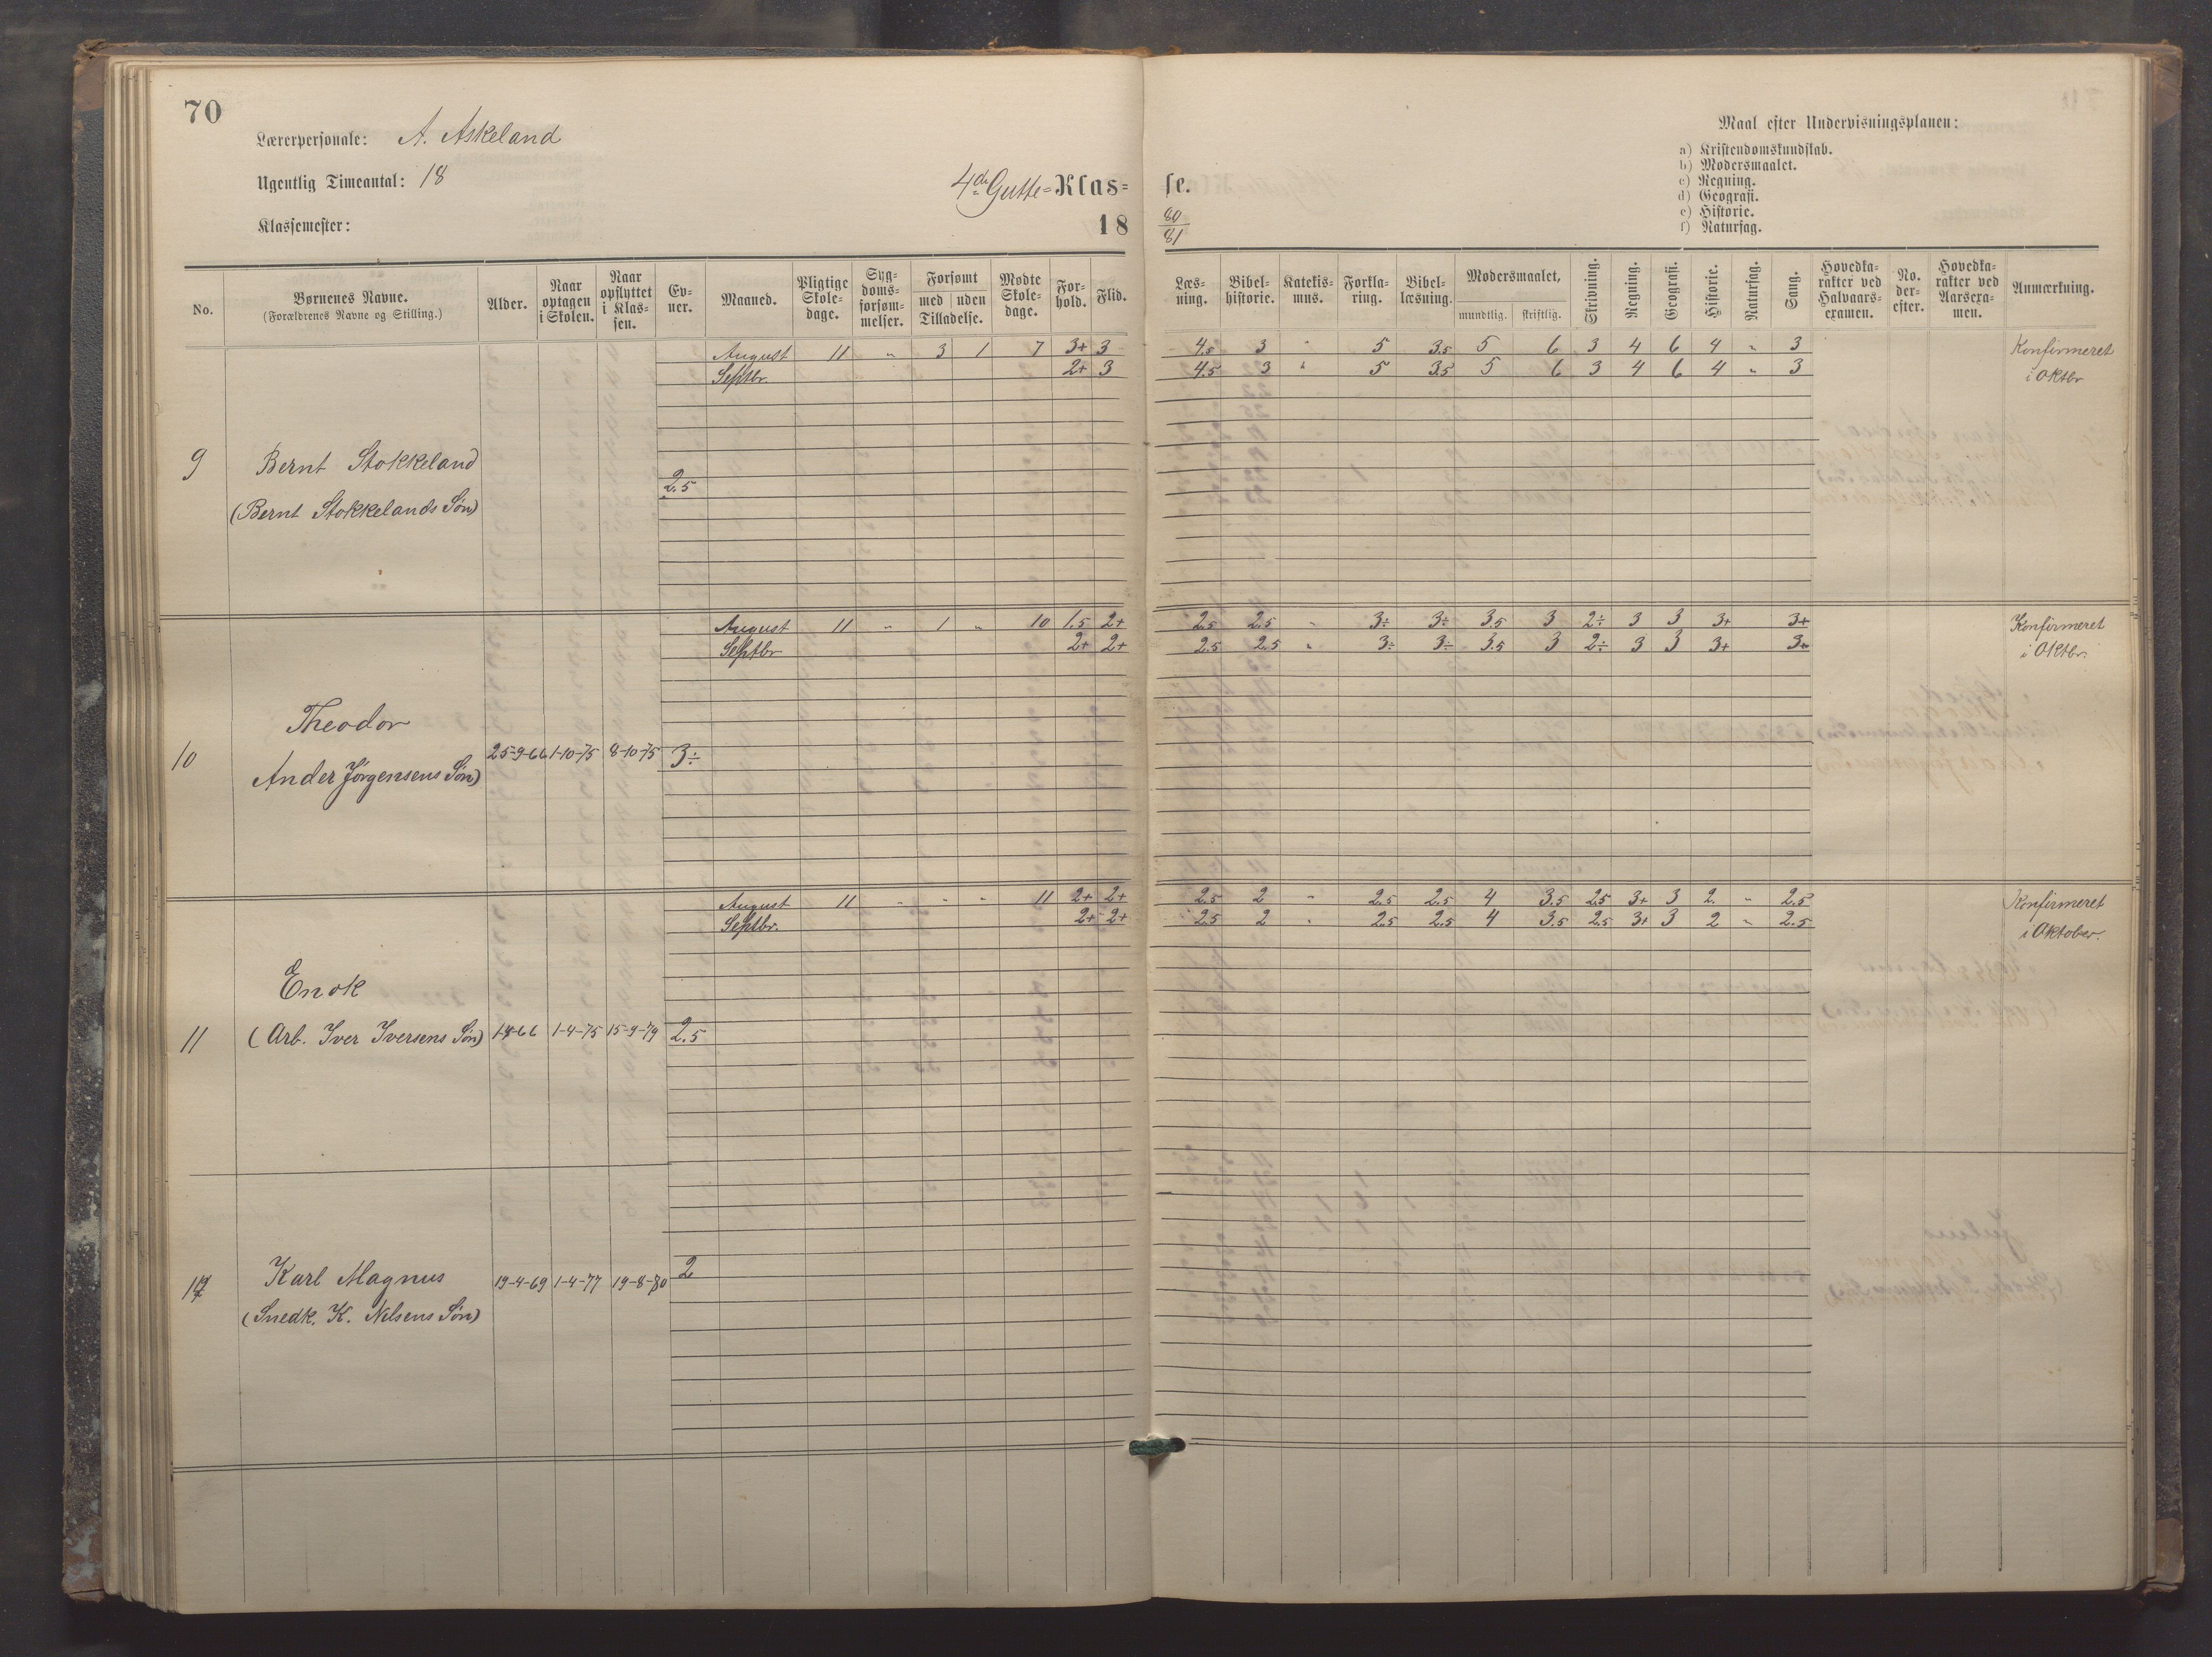 70
Lærerpersonale: A. Askeland
Ugentlig Timeantal: 18
Klassemester:
4de Gutte=Klas= se.
18 80/81
Maal efter Undervisningsplanen:
a) Kristendomskundskab.
b) Modersmaalet.
c) Regning.
d) Geografi.
e) Historie.
f) Naturfag.
No. | Børnenes Navne. (Forældrenes Navne og Stilling.) | Alder. | Naar optagen i Skolen. | Naar opflyttet i Klas-sen. | Ev-ner. | Maaned. | Pligtige Skole-dage. | Syg-doms-forsøm-melser. | Forsømt med uden Tilladelse. | Mødte Skole-dage. | For-hold. | Flid. | Læs-ning. | Bibel-historie. | Katekis-mus. | Forkla-ring. | Bibel-læsning. | Modersmaalet, mundtlig. skriftlig. | Skrivning. | Regning. | Geografi. | Historie. | Naturfag. | Sang. | Hovedka-rakter ved Halvaars-examen. | No. der-efter. | Hovedka-rakter ved Aarsexa-men. | Anmærkning.
August 11 „ 3 1 7 3+ 3 4.5 3 „ 5 3.5 5 6 3 4 6 4 „ 3 Konfirmeret
Septbr. 2+ 3 4.5 3 „ 5 3.5 5 6 3 4 6 4 „ 3 i Oktbr
9 Bernt Stokkeland
2.5
(Bernt Stokkelands Søn)
August 11 „ 1 „ 10 1.5 2+ 2.5 2.5 „ 3÷ 3÷ 3.5 3 2÷ 3 3 3+ 3+ Konfirmeret
Septbr 2+ 2+ 2.5 2.5 „ 3÷ 3÷ 3.5 3 2÷ 3 3 3+ 3+ i Oktbr.
Theodor
10 25-9-66 1-10-75 8-10-75 3÷
Ander Jørgensens Søn)
August 11 „ „ „ 11 2+ 2+ 2.5 2 „ 2.5 2.5 4 3.5 2.5 3+ 3 2. „ 2.5 Konfirmeret
Septbr. 2+ 2+ 2.5 2 „ 2.5 2.5 4 3.5 2.5 3+ 3 2 „ 2.5 i Oktober.
Enok
11 (Arb. Iver Iversens Søn) 1-4-66 1-4-75 15-9-79 2.5
Karl Magnus 19-4-69 1-4-77 19-8-80 2
(Snedk. K. Nilsens Søn)